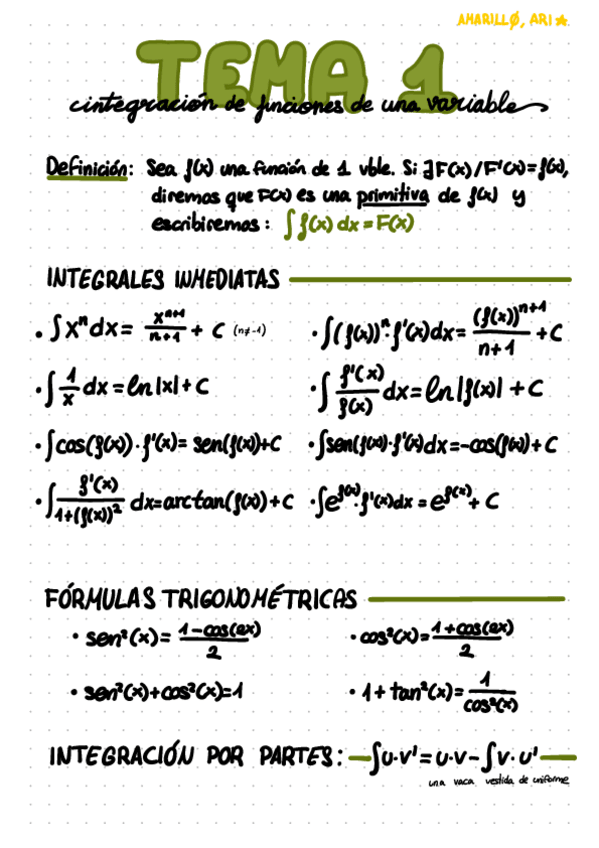 AMARILLØ, ARI ★
TEMA 1
integración de funciones de una variable
Definición: Sea f(x) una función de 1 vble. Si ∃F(x)/F'(x)=f(x),
diremos que F(x) es una primitiva de f(x) y
escribiremos: ∫f(x) dx = F(x)
INTEGRALES INMEDIATAS
• ∫xⁿdx = xⁿ⁺¹/n+1 + C (n≠-1)
• ∫(f(x))ⁿ·f'(x)dx = (f(x))ⁿ⁺¹/n+1 + C
• ∫1/x dx = ln|x| + C
• ∫f'(x)/f(x) dx = ln|f(x)| + C
• ∫cos(f(x))·f'(x) = sen(f(x))+C
• ∫sen(f(x))·f'(x)dx = -cos(f(x)) + C
• ∫f'(x)/1+(f(x))² dx = arctan(f(x)) + C
• ∫e^f(x)·f'(x)dx = e^f(x) + C
FÓRMULAS TRIGONOMÉTRICAS
• sen²(x) = 1-cos(2x)/2
• cos²(x) = 1+cos(2x)/2
• sen²(x)+cos²(x)=1
• 1+tan²(x) = 1/cos²(x)
INTEGRACIÓN POR PARTES: ∫u·v' = u·v - ∫v·u'
una vaca vestida de uniforme